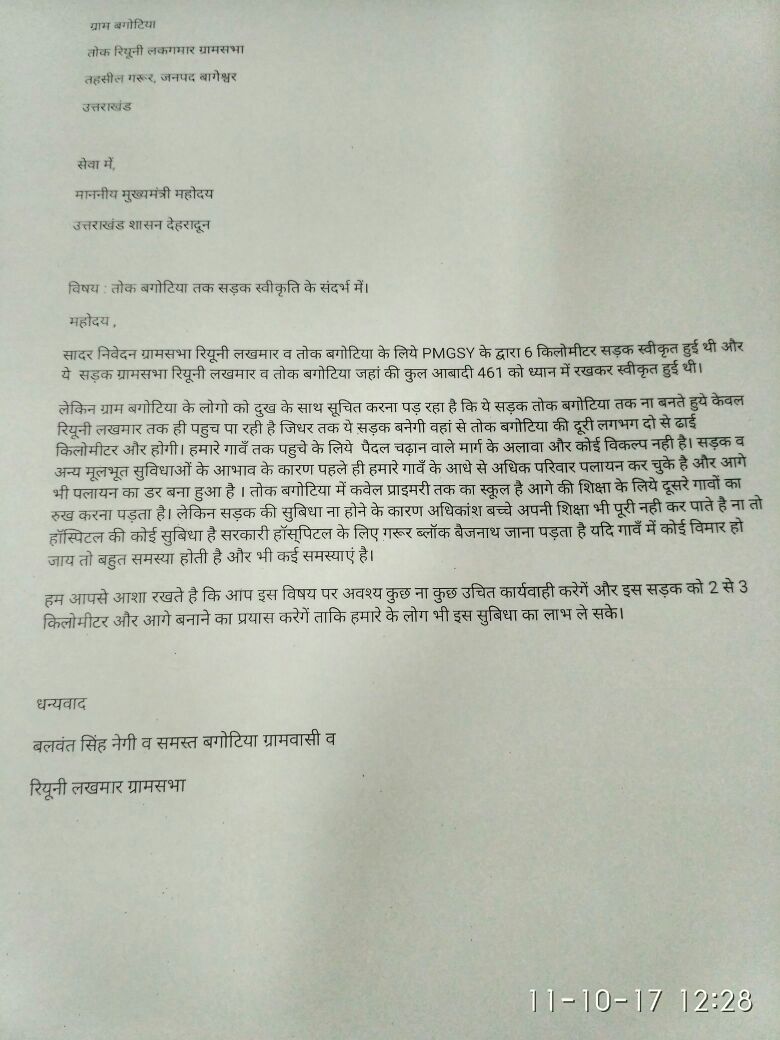 ग्राम बगोटिया
तोक रियूनी लकगमार ग्रामसभा
तहसील गरूर, जनपद बागेश्वर
उत्तराखंड
सेवा में,
माननीय मुख्यमंत्री महोदय
उत्तराखंड शासन देहरादून
विषय : तोक बगोटिया तक सड़क स्वीकृति के संदर्भ में।
महोदय ,
सादर निवेदन ग्रामसभा रियूनी लखमार व तोक बगोटिया के लिये PMGSY के द्वारा 6 किलोमीटर सड़क स्वीकृत हुई थी और
ये सड़क ग्रामसभा रियूनी लखमार व तोक बगोटिया जहां की कुल आबादी 461 को ध्यान में रखकर स्वीकृत हुई थी।
लेकिन ग्राम बगोटिया के लोगो को दुख के साथ सूचित करना पड़ रहा है कि ये सड़क तोक बगोटिया तक ना बनते हुये केवल
रियूनी लखमार तक ही पहुच पा रही है जिधर तक ये सड़क बनेगी वहां से तोक बगोटिया की दूरी लगभग दो से ढाई
किलोमीटर और होगी। हमारे गावँ तक पहुचे के लिये पैदल चढ़ान वाले मार्ग के अलावा और कोई विकल्प नही है। सड़क व
अन्य मूलभूत सुविधाओं के आभाव के कारण पहले ही हमारे गावँ के आधे से अधिक परिवार पलायन कर चुके है और आगे
भी पलायन का डर बना हुआ है । तोक बगोटिया में कवेल प्राइमरी तक का स्कूल है आगे की शिक्षा के लिये दूसरे गावों का
रुख करना पड़ता है। लेकिन सड़क की सुबिधा ना होने के कारण अधिकांश बच्चे अपनी शिक्षा भी पूरी नही कर पाते है ना तो
हॉस्पिटल की कोई सुबिधा है सरकारी हॉस्पिटल के लिए गरूर ब्लॉक बैजनाथ जाना पड़ता है यदि गावँ में कोई विमार हो
जाय तो बहुत समस्या होती है और भी कई समस्याएं है।
हम आपसे आशा रखते है कि आप इस विषय पर अवश्य कुछ ना कुछ उचित कार्यवाही करेगें और इस सड़क को 2 से 3
किलोमीटर और आगे बनाने का प्रयास करेगें ताकि हमारे के लोग भी इस सुबिधा का लाभ ले सके।
धन्यवाद
बलवंत सिंह नेगी व समस्त बगोटिया ग्रामवासी व
रियूनी लखमार ग्रामसभा
11-10-17 12:28